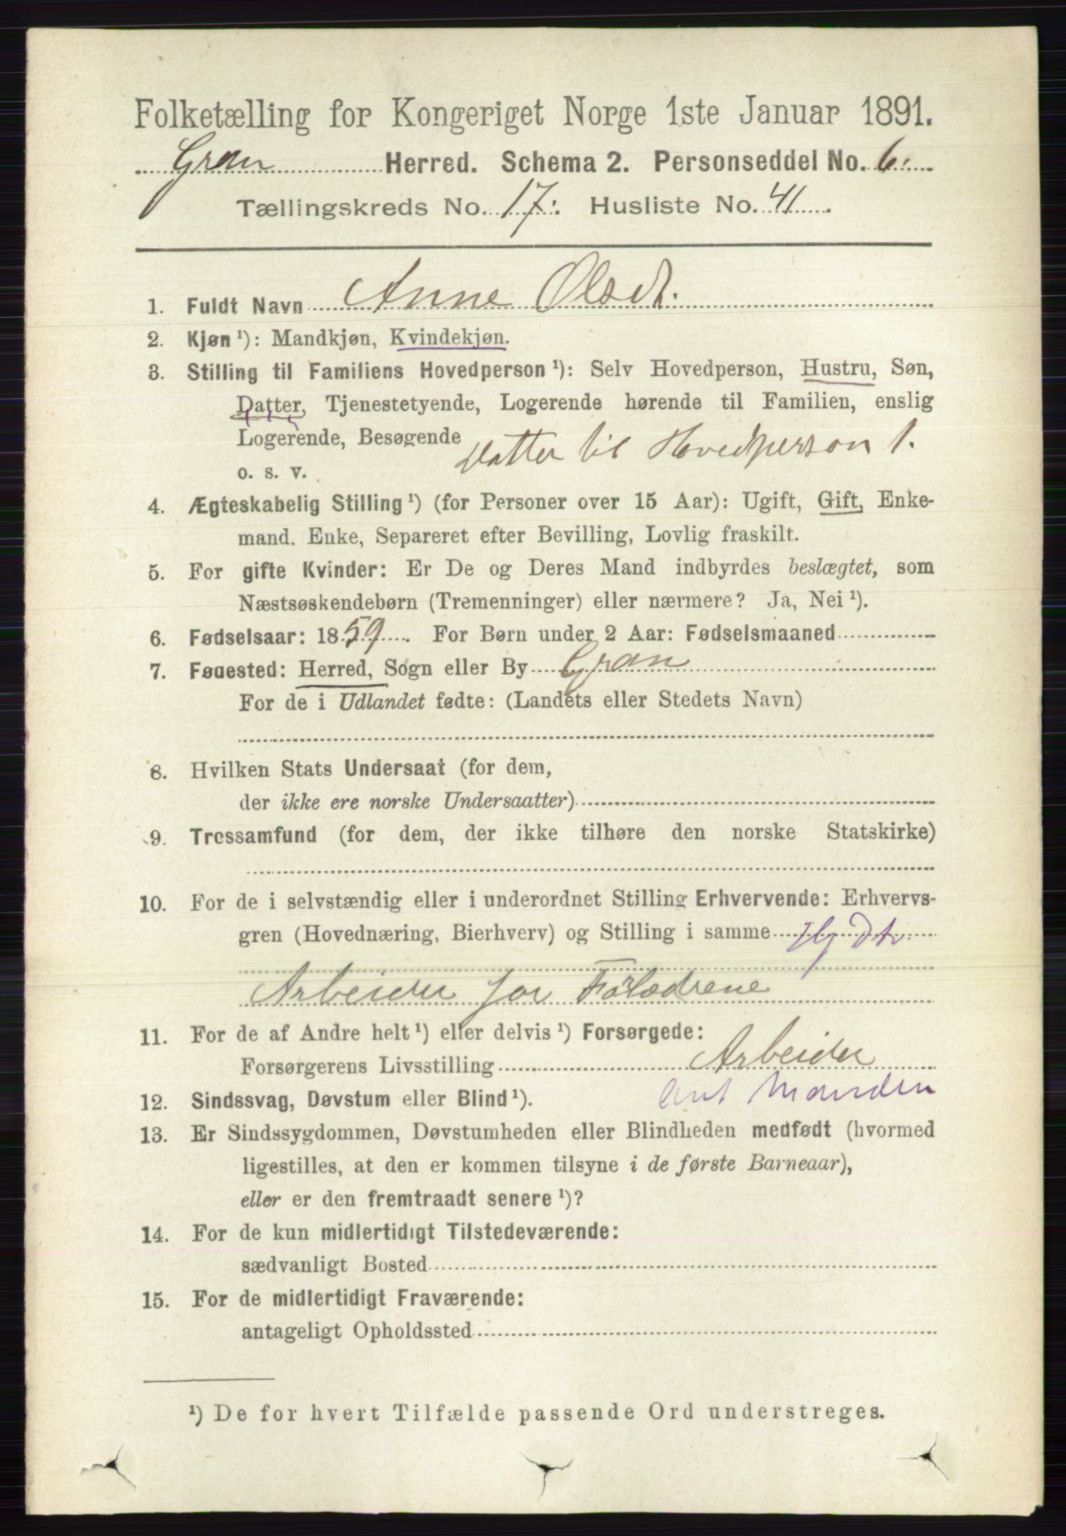 Folketælling for Kongeriget Norge 1ste Januar 1891.
Gran Herred. Schema 2. Personseddel No. 6.
Tællingskreds No. 17. Husliste No. 41.
1. Fuldt Navn Anne Olsdt.
2. Kjøn ¹): Mandkjøn, Kvindekjøn.
3. Stilling til Familiens Hovedperson ¹): Selv Hovedperson, Hustru, Søn,
Datter, Tjenestetyende, Logerende hørende til Familien, enslig
Logerende, Besøgende Datter til Hovedperson 1.
o. s. v.
4. Ægteskabelig Stilling ¹) (for Personer over 15 Aar): Ugift, Gift, Enke-
mand. Enke, Separeret efter Bevilling, Lovlig fraskilt.
5. For gifte Kvinder: Er De og Deres Mand indbyrdes beslægtet, som
Næstsøskendebørn (Tremenninger) eller nærmere? Ja, Nei ¹).
6. Fødselsaar: 1859. For Børn under 2 Aar: Fødselsmaaned
7. Føuested: Herred, Sogn eller By Gran
For de i Udlandet fødte: (Landets eller Stedets Navn)
8. Hvilken Stats Undersaat (for dem,
der ikke ere norske Undersaatter)
9. Trossamfund (for dem, der ikke tilhøre den norske Statskirke)
10. For de i selvstændig eller i underordnet Stilling Erhvervende: Erhvervs-
gren (Hovednæring, Bierhverv) og Stilling i samme
Arbeider for Forældrene
11. For de af Andre helt ¹) eller delvis ¹) Forsørgede:
Forsørgerens Livsstilling Arbeider
12. Sindssvag, Døvstum eller Blind ¹). Manden
13. Er Sindssygdommen, Døvstumheden eller Blindheden medfødt (hvormed
ligestilles, at den er kommen tilsyne i de første Barneaar),
eller er den fremtraadt senere ¹)?
14. For de kun midlertidigt Tilstedeværende:
sædvanligt Bosted
15. For de midlertidigt Fraværende:
antageligt Opholdssted
¹) De for hvert Tilfælde passende Ord understreges.